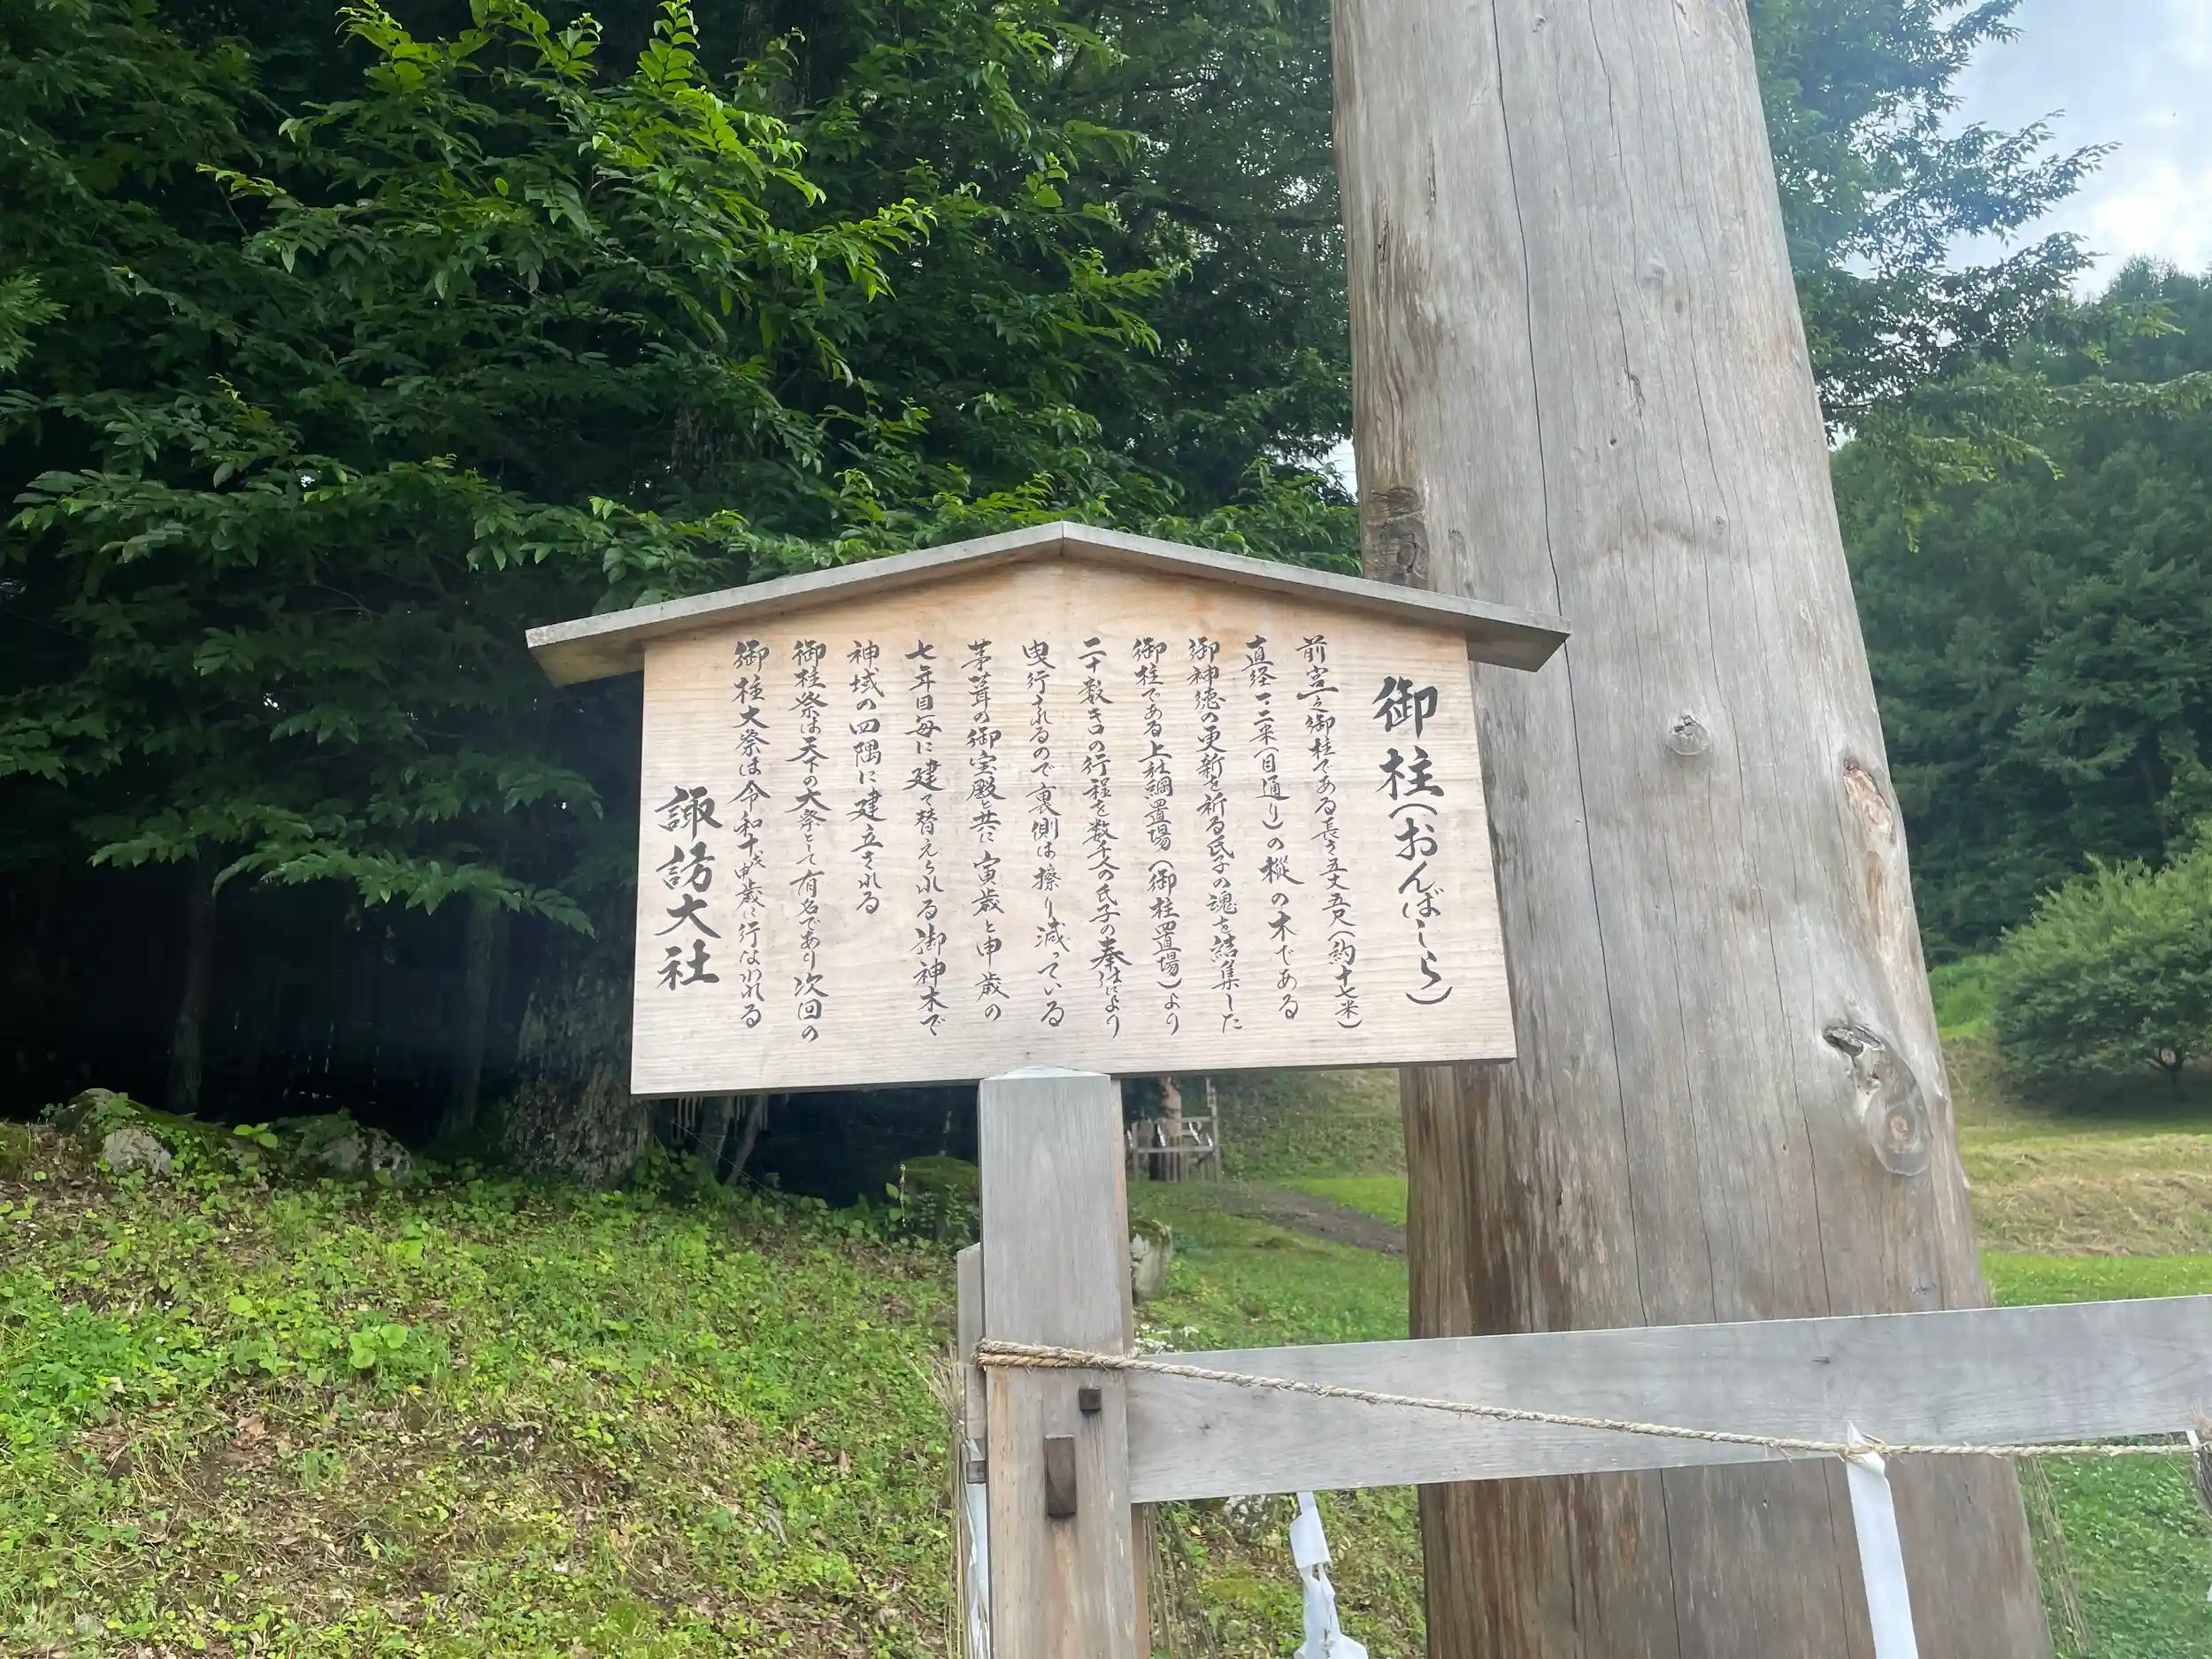 御柱(おんばしら)
前宮之御柱である長さ五丈五尺(約十七米)
直径一・二米(目通り)の樅の木である
御神徳の更新を祈る氏子の魂を結集した
御柱である上社綱置場(御柱置場)より
二十数キロの行程を数千人の氏子の奉仕により
曳行されるので裏側は擦り減っている
茅葺の御宝殿と共に寅歳と申歳の
七年目毎に建て替えられる御神木で
神域の四隅に建立される
御柱祭は天下の大祭として有名であり次回の
御柱大祭は令和十年申歳に行なわれる
諏訪大社